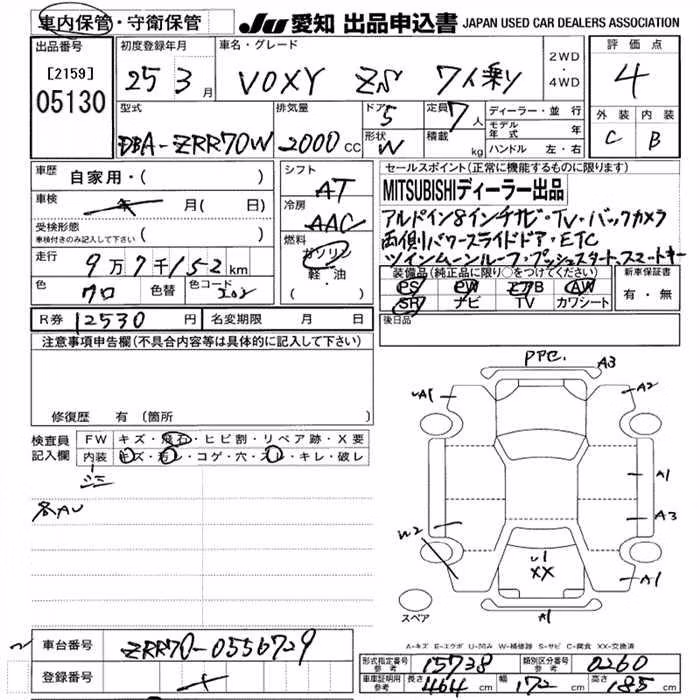 車内保管・守衛保管
JU 愛知 出品申込書 JAPAN USED CAR DEALERS ASSOCIATION
出品番号
[2159]
05130
初度登録年月
25 3月
車名・グレード
VOXY ZS 7人乗り
2WD・4WD
評価点
4
外装 内装
C B
型式
DBA-ZRR70W
排気量
2000CC
ドア 5
形状 W
定員 7人
積載 kg
ディーラー・並行
モデル年式 年
ハンドル 左・右
車歴
自家用・( )
車検
年 月( 日)
受検形態
車検付きのみ記入して下さい ( )
走行
9万7千152km
色
クロ
色替
色コード 202
シフト
AT
冷房
AAC
燃料
ガソリン
軽・油
( )
セールスポイント(正常に機能するものに限ります)
MITSUBISHIディーラー出品
アルパイン8インチナビ・TV・バックカメラ
両側パワースライドドア・ETC
ツインムーンルーフ・プッシュスタート、スマートキー
装備品(純正品に限り○をつけてください)
PS PW エアB AW
SR ナビ TV カワシート
新車保証書
有・無
R券 12530円
名変期限 月 日
後日品
注意事項申告欄(不具合内容等は具体的に記入して下さい)
修復歴 有(箇所 )
検査員記入欄
FW キズ・飛石・ヒビ割・リペア跡・X要
内装 キズ・汚レ・コゲ・穴・スレ・キレ・破レ
シミ
各AU
PPC.
A3
A1
A2
A1
A3
W2
U1
XX
A1
A1
スペア
A-キズ E-エクボ U-凹み W-補修跡 S-サビ C-腐食 XX-交換済
車台番号 ZRR70-0556729
登録番号
形式指定番号 参考 15738
類別区分番号 参考 0260
車庫証明用 参考 長さ 464cm 幅 172cm 高さ 185cm